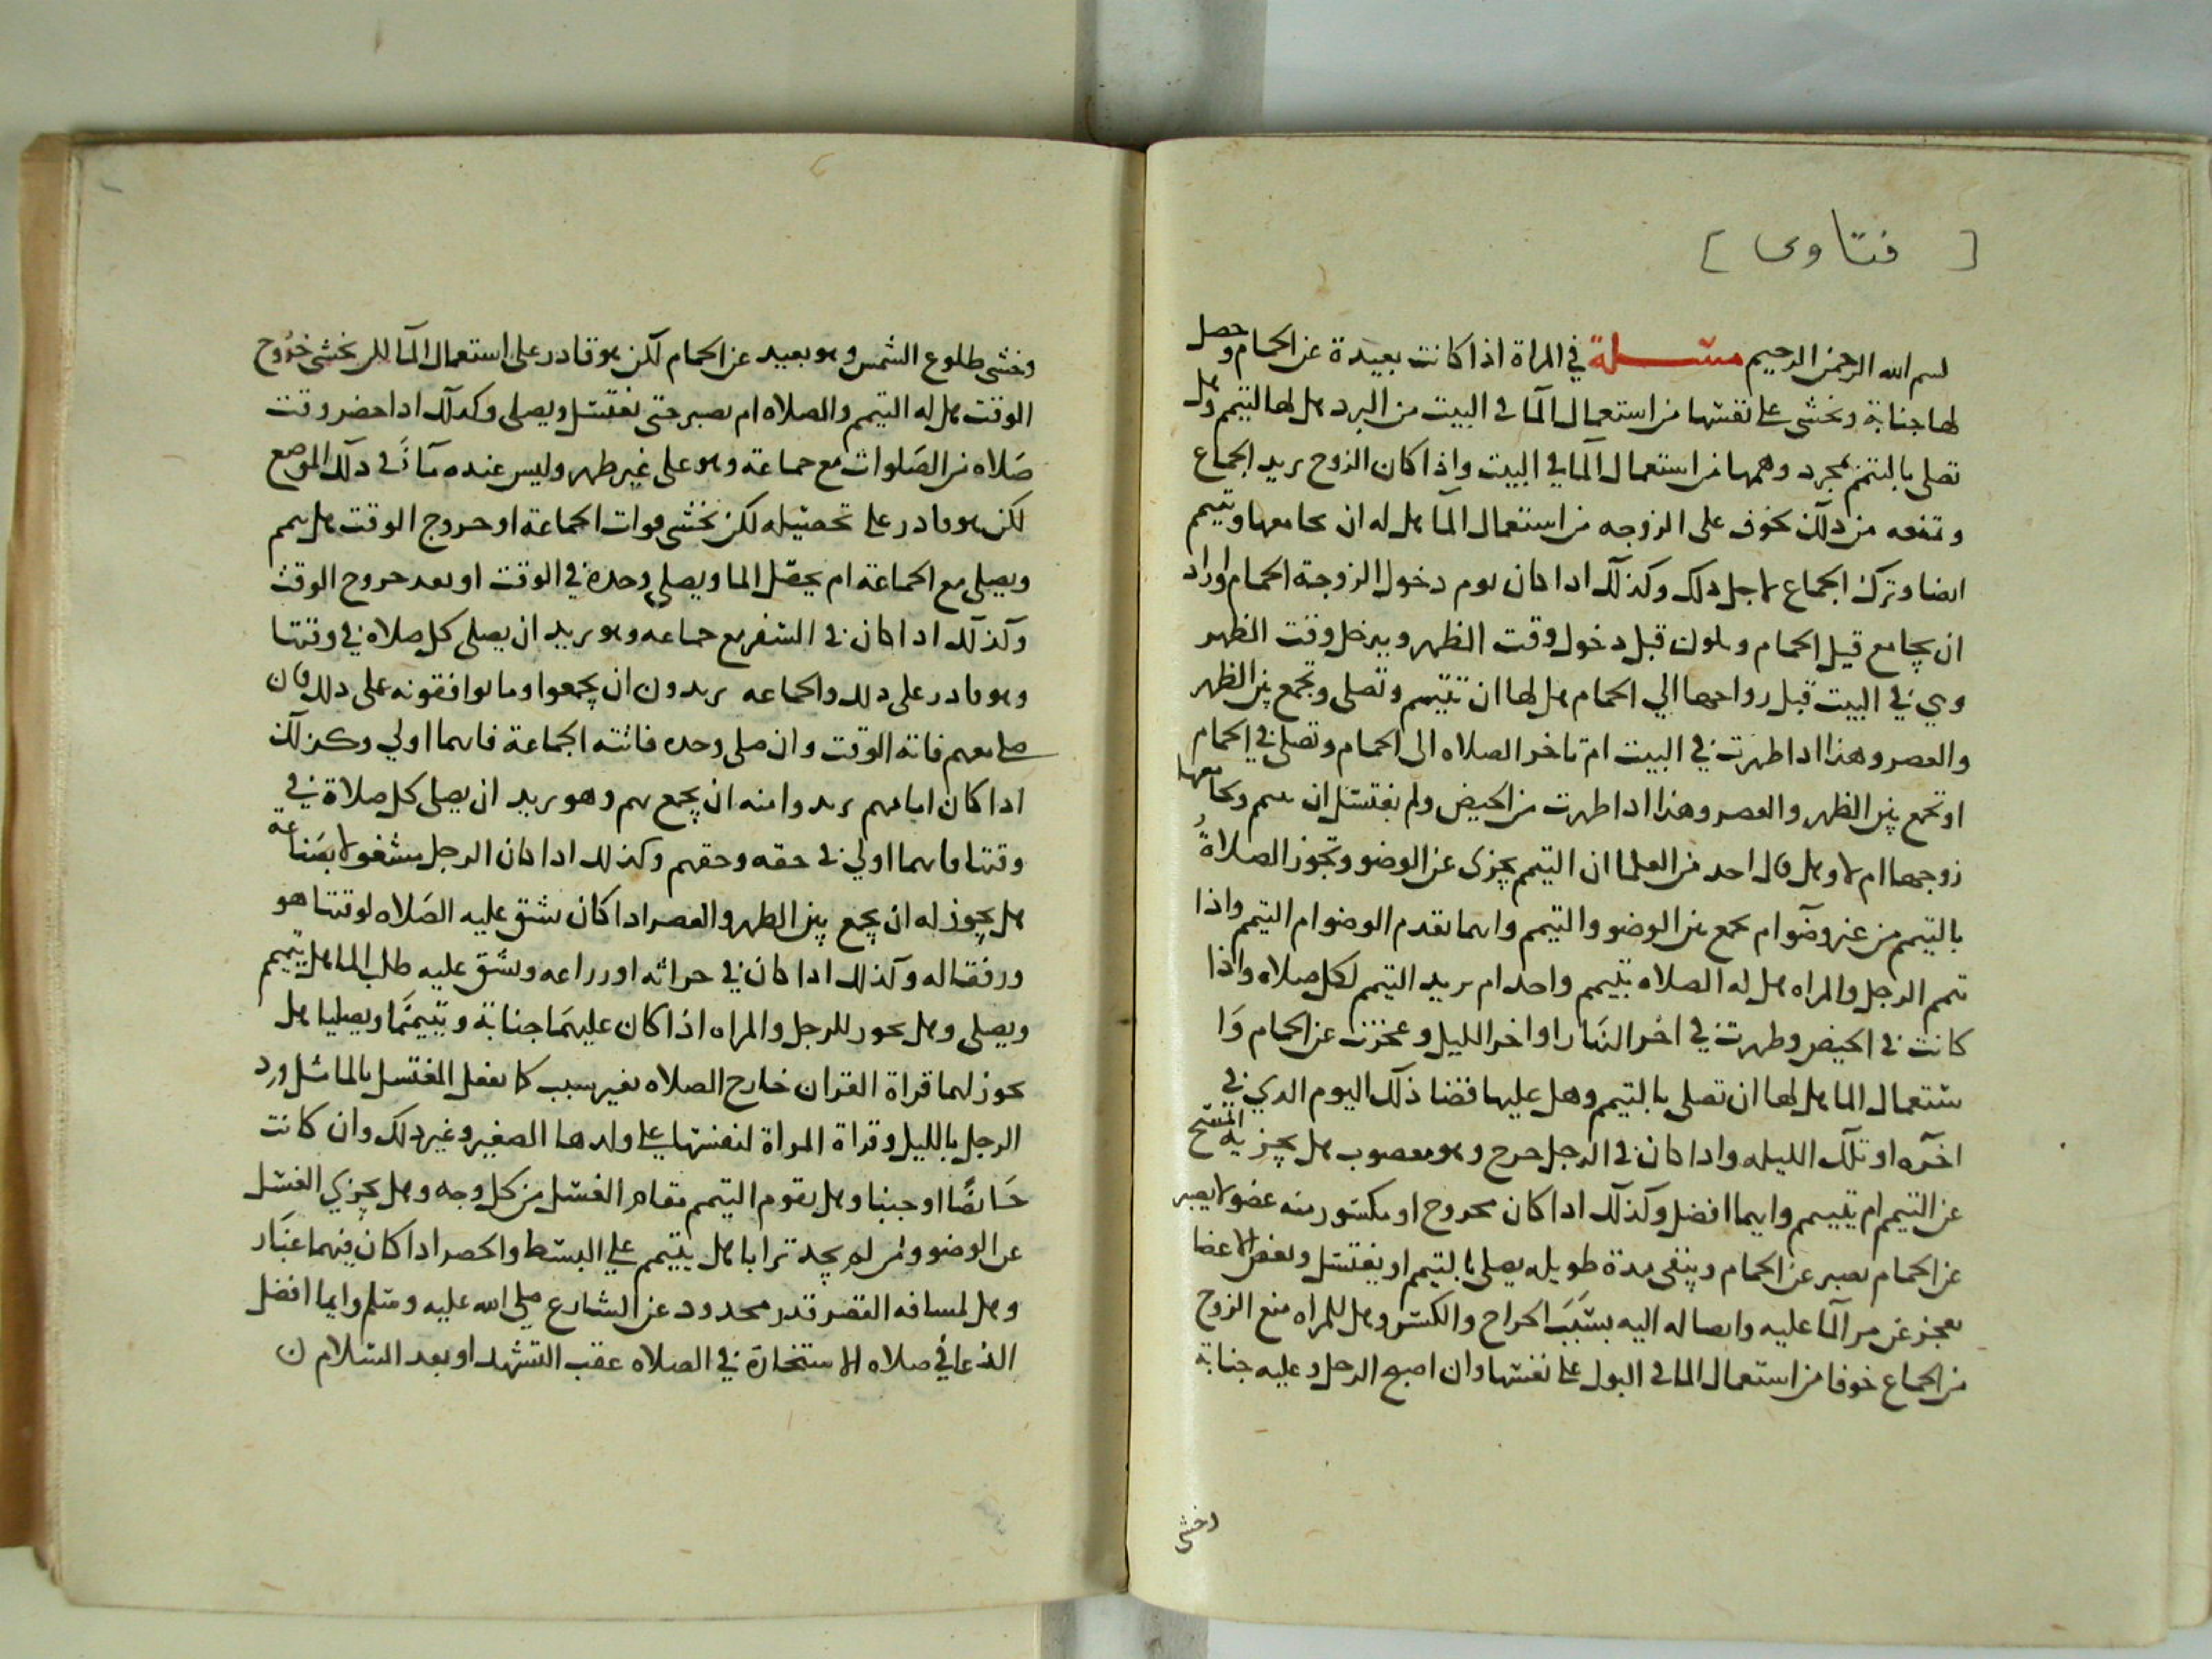 [ فتاوى ]
بسم الله الرحمن الرحيم مسئلة في المراة اذا كانت بعيدة عن الحمام وحصل
لها جنابة وتخشى على نفسها من استعمال الما في البيت من البرد هل لها التيمم وهل
تصلي بالتيمم بمجرد وهمها من استعمال الما في البيت واذا كان الزوج يريد الجماع
وتمنعه من ذلك بخوف على الزوجه من استعمال الما هل له ان يجامعها وتيمم
ايضا وترك الجماع لاجل ذلك وكذلك اذا كان يوم دخول الزوجة الحمام واراد
ان يجامع قبل الحمام ويكون قبل دخول وقت الظهر ويدخل وقت الظهر
وهي في البيت قبل رواحها الي الحمام هل لها ان تتيمم وتصلى وتجمع بين الظهر
والعصر وهذا اذا طهرت في البيت ام تاخر الصلاه الى الحمام وتصلى في الحمام
او تجمع بين الظهر والعصر وهذا اذا طهرت من الحيض ولم تغتسل ان تتيمم ويجامعها
زوجها ام لا وهل قال احد من العلما ان التيمم يجزى عن الوضو وتجوز الصلاة
بالتيمم من غير وضوا م يجمع بين الوضو والتيمم وايهما يقدم الوضوا م التيمم واذا
تيمم الرجل والمراه هل له الصلاه بتيمم واحد ام يريد التيمم لكل صلاه واذا
كانت في الحيض وطهرت في اخر النهار او اخر الليل وعجزت عن الحمام وا
ستعمال الما هل لها ان تصلى بالتيمم وهل عليها قضا ذلك اليوم الدي في
اخره او تلك الليله واذا كان في الرجل جرح وهو معصوب هل يجزيه المسح
عن التيمم ام يتيمم وايهما افضل وكذلك اذا كان مجروح او مكسور منه عضو لا يصبر
عن الحمام يصبر عن الحمام ويبقى مدة طويله يصلى بالتيمم او يغتسل وبعض الاعضا
يعجز عن مر الما عليه وايصاله اليه بسبب الجراح والكسر وهل للمراه منع الزوج
من الجماع خوفا من استعمال الما في البول على نفسها وان اصبح الرجل وعليه جنابة
وخشي
وخشى طلوع الشمس وهو بعيد عن الحمام لكن هو قادر على استعمال الما لكن يخشى خروج
الوقت هل له التيمم والصلاه ام يصبر حتى يغتسل ويصلى وكذلك اذا حضر وقت
صلاه من الصلوات مع جماعة وهو على غير طهر وليس عنده ما في ذلك الموضع
لكن هو قادر على تحصيله لكن يخشى فوات الجماعة او خروج الوقت هل يتيمم
ويصلى مع الجماعة ام يحصل الما ويصلى وحده في الوقت او بعد خروج الوقت
وكذلك اذا كان في السفر مع جماعه وهو يريد ان يصلى كل صلاه في وقتها
وهو قادر على ذلك والجماعه يريدون ان يجمعوا وما يوافقونه على ذلك فان
صلى معهم فاته الوقت وان صلى وحده فاتته الجماعة فايهما اولي وكذلك
اذا كان امامهم يريدوا منه ان يجمع بهم وهو يريد ان يصلى كل صلاة في
وقتها فايهما اولي في حقه وحقهم وكذلك اذا كان الرجل مشغولا بصناعة
هل يجوز له ان يجمع بين الظهر والعصر اذا كان يشق عليه الصلاه لوقتها هو
ورفقاله وكذلك اذا كان في حراثه او زراعه ويشق عليه طلب الما هل يتيمم
ويصلى وهل يجوز للرجل والمراه اذا كان عليهما جنابة وتيمما ويصليا هل
يجوز لهما قراة القران خارج الصلاه بغير سبب كما يفعل المغتسل بالما مثل ورد
الرجل بالليل وقراة المراة لنفسها على ولدها الصغير وغير ذلك وان كانت
حائضا او جنبا وهل يقوم التيمم مقام الغسل من كل وجه وهل يجزي الغسل
عن الوضو ومن لم يجد ترابا هل يتيمم على البسط والحصر اذا كان فيهما غبار
وهل لمسافه القصر قدر محدود عن الشارع صلى الله عليه وسلم وايما افضل
الدعا في صلاه الاستخارة في الصلاه عقب التشهد او بعد السلام ن